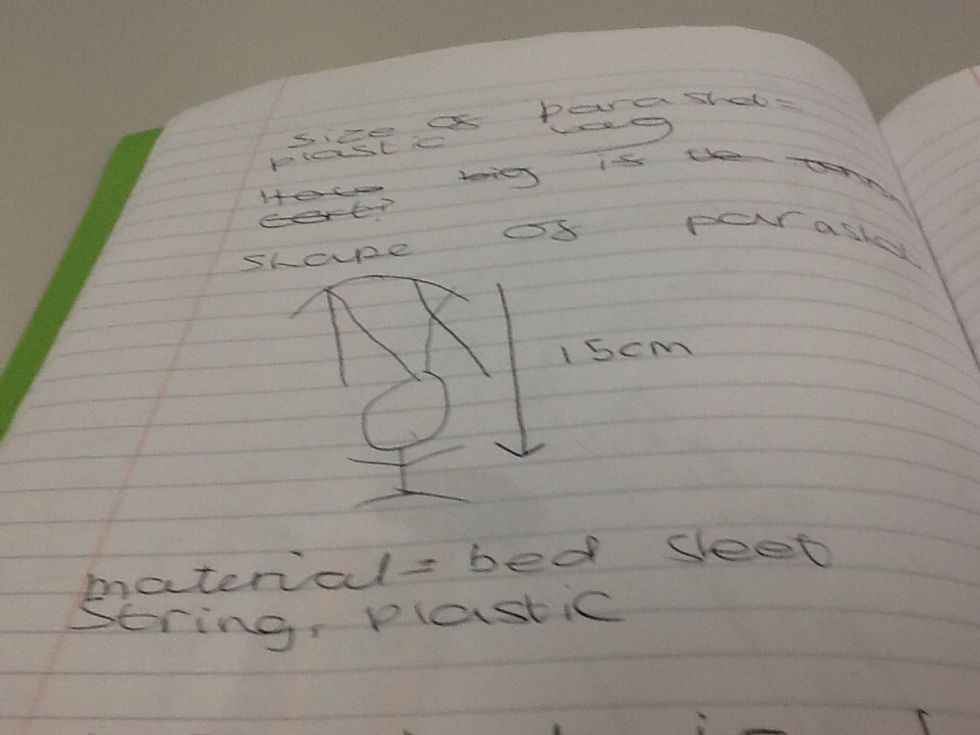 size of parashot =
plastic bag
How big is the
cort?
shape of parashot
15cm
material = bed sleet
String, plastic